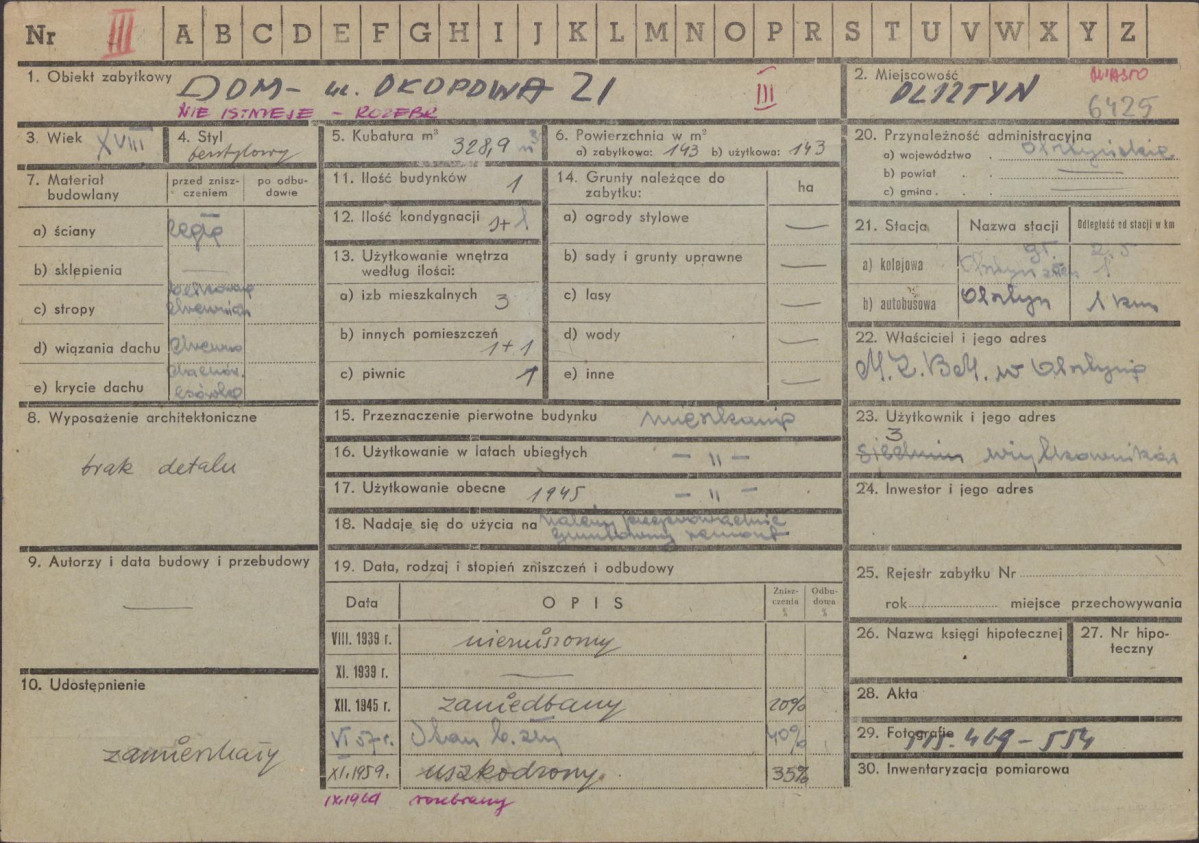 Nr III A B C D E F G H I J K L M N O P R S T U V W X Y Z
1. Obiekt zabytkowy DOM - ul. OKOPOWA 21 III
NIE ISTNIEJE - ROZEBR
2. Miejscowość OLSZTYN MIASTO
6425
3. Wiek XVIII
4. Styl bezstylowy
5. Kubatura m³ 328,9 m³
6. Powierzchnia w m²
a) zabytkowa: 143 b) użytkowa: 143
20. Przynależność administracyjna
a) województwo Olsztyńskie
b) powiat —
c) gmina
7. Materiał budowlany
przed zniszczeniem
po odbudowie
a) ściany cegła
b) sklepienia —
c) stropy belkowe drewnian
d) wiązania dachu drewno
e) krycie dachu
11. Ilość budynków 1
12. Ilość kondygnacji 1+1
13. Użytkowanie wnętrza według ilości:
a) izb mieszkalnych 3
b) innych pomieszczeń 1+1
c) piwnic 1
14. Grunty należące do zabytku:
ha
a) ogrody stylowe —
b) sady i grunty uprawne —
c) lasy —
d) wody —
e) inne —
21. Stacja
Nazwa stacji
Odległość od stacji w km
a) kolejowa Olsztyn 1
b) autobusowa Olsztyn 1 km
22. Właściciel i jego adres
M.Z.B.M. w Olsztynie
8. Wyposażenie architektoniczne
brak detalu
15. Przeznaczenie pierwotne budynku mieszkanie
16. Użytkowanie w latach ubiegłych — " —
17. Użytkowanie obecne 1945 — " —
18. Nadaje się do użycia na należy przeprowadzenie
gruntowny remont
23. Użytkownik i jego adres
3
siedmiu użytkowników
24. Inwestor i jego adres
9. Autorzy i data budowy i przebudowy
—
10. Udostępnienie
zamieszkały
19. Data, rodzaj i stopień zniszczeń i odbudowy
Data
OPIS
Zniszczenia %
Odbudowa %
VIII. 1939 r. nienaruszony
XI. 1939 r. —
XII. 1945 r. zaniedbany 20%
VI 57 r. Stan b. zły 40%
XI.1959. uszkodzony. 35%
IX.1961 rozebrany
25. Rejestr zabytku Nr
rok miejsce przechowywania
26. Nazwa księgi hipotecznej
27. Nr hipoteczny
28. Akta
29. Fotografie 115-469-554
30. Inwentaryzacja pomiarowa